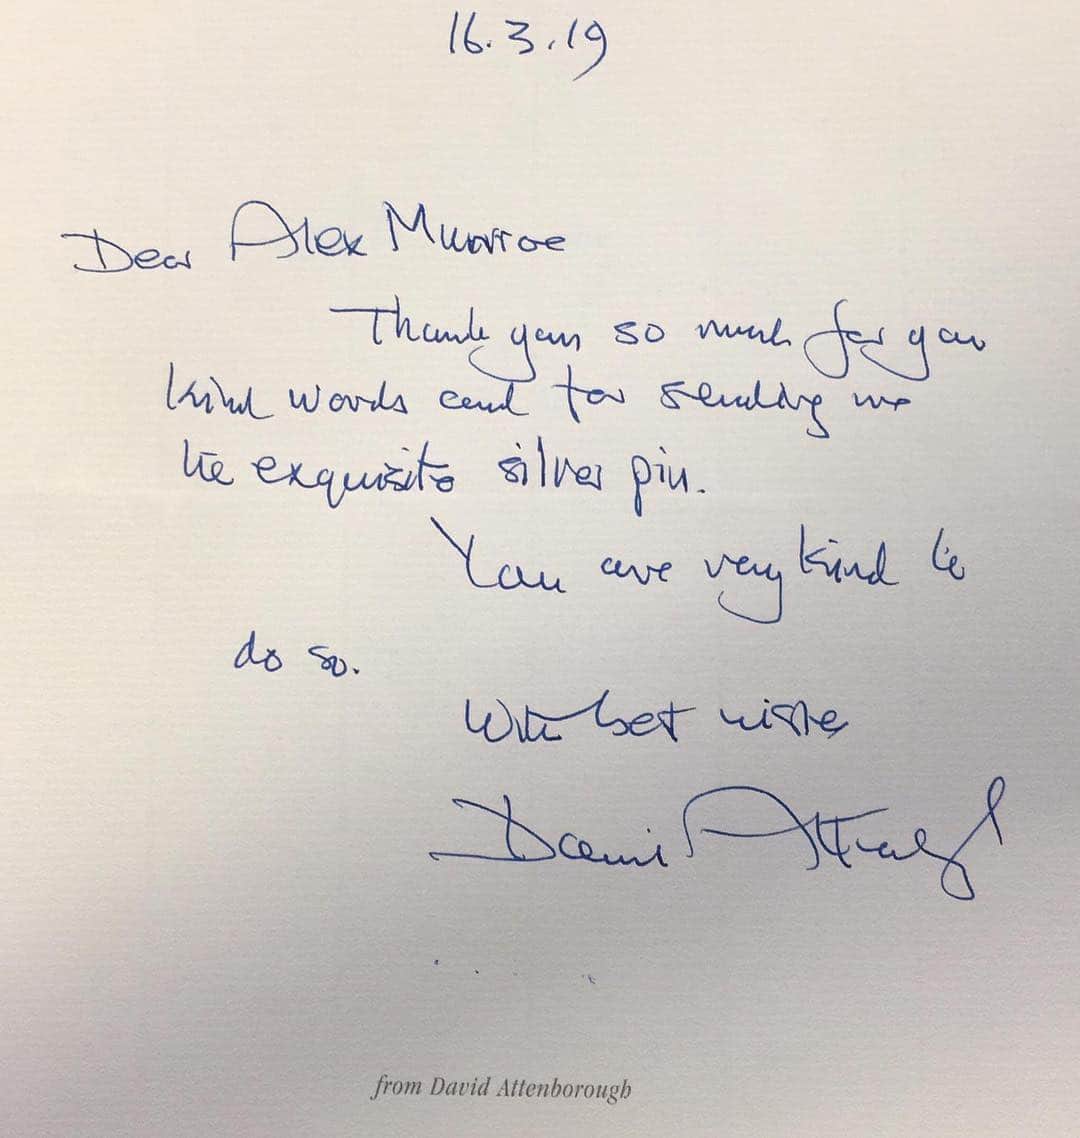 16.3.19
Dear Alex Munroe
Thank you so much for your
kind words and for sending me
the exquisite silver pin.
You are very kind to
do so.
With best wishes
David Attenborough
from David Attenborough